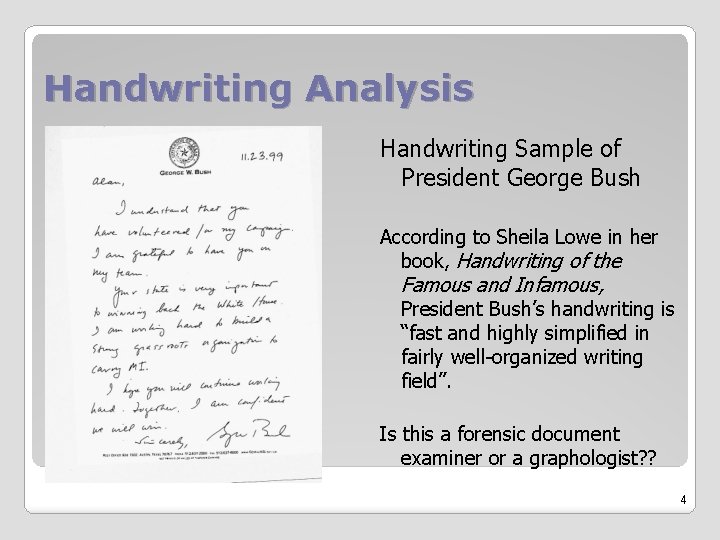 Handwriting Analysis
11.23.99
GEORGE W. BUSH
Alan,
I understand that you
have volunteered for my campaign.
I am grateful to have you on
my team.
Your state is very important
to winning back the White House.
I am working hard to build a
strong grassroots organization to
carry MI.
I hope you will continue working
hard. Together, I am confident
we will win.
Sincerely,
Handwriting Sample of
President George Bush
According to Sheila Lowe in her
book, Handwriting of the
Famous and Infamous,
President Bush’s handwriting is
“fast and highly simplified in
fairly well-organized writing
field”.
Is this a forensic document
examiner or a graphologist? ?
4